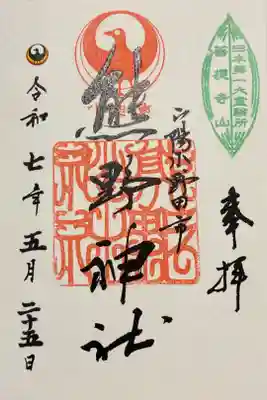 日本第一大霊験所
菩提寺山
奉拝
山陽小野田市
熊野神社
令和七年五月二十五日